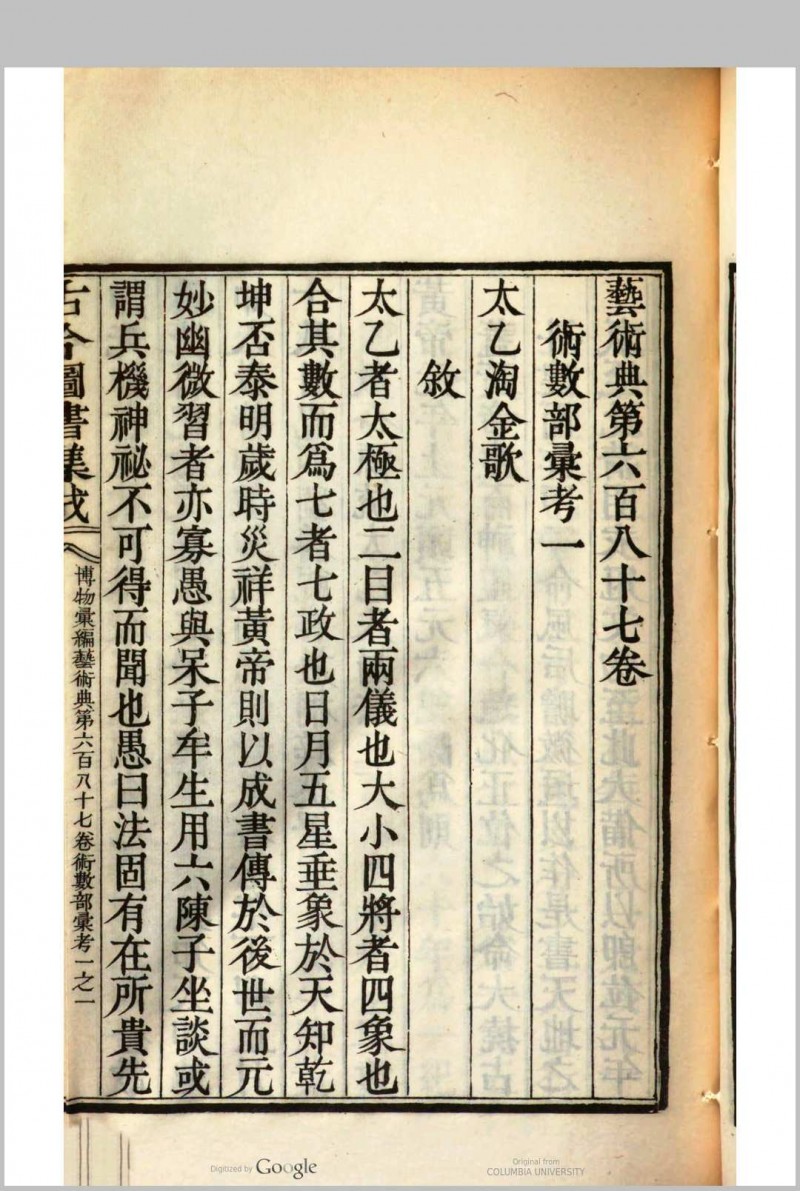 藝術典第六百八十七卷
術數部彙考一
太乙淘金歌
敘
太乙者太極也二目者兩儀也大小四將者四象也
合其數而爲七者七政也日月五星垂象於天知乾
坤否泰明歲時災祥黃帝則以成書傳於後世而元
妙幽微習者亦寡愚與呆子牟生用六陳子坐談或
謂兵機神祕不可得而聞也愚曰法固有在所貴先
古今圖書集成
博物彙編藝術典第六百八十七卷術數部彙考一之一
Digitized by Google
Original from
COLUMBIA UNIVERSITY